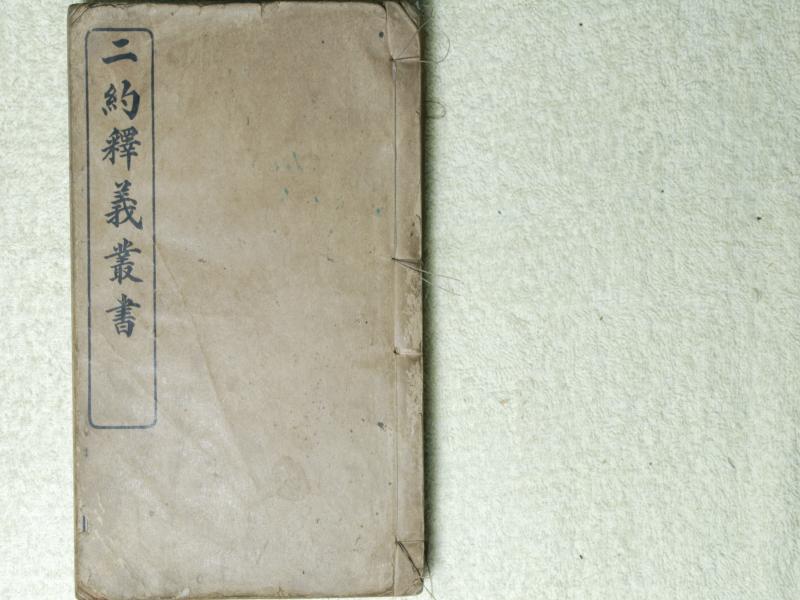 二約釋義叢書